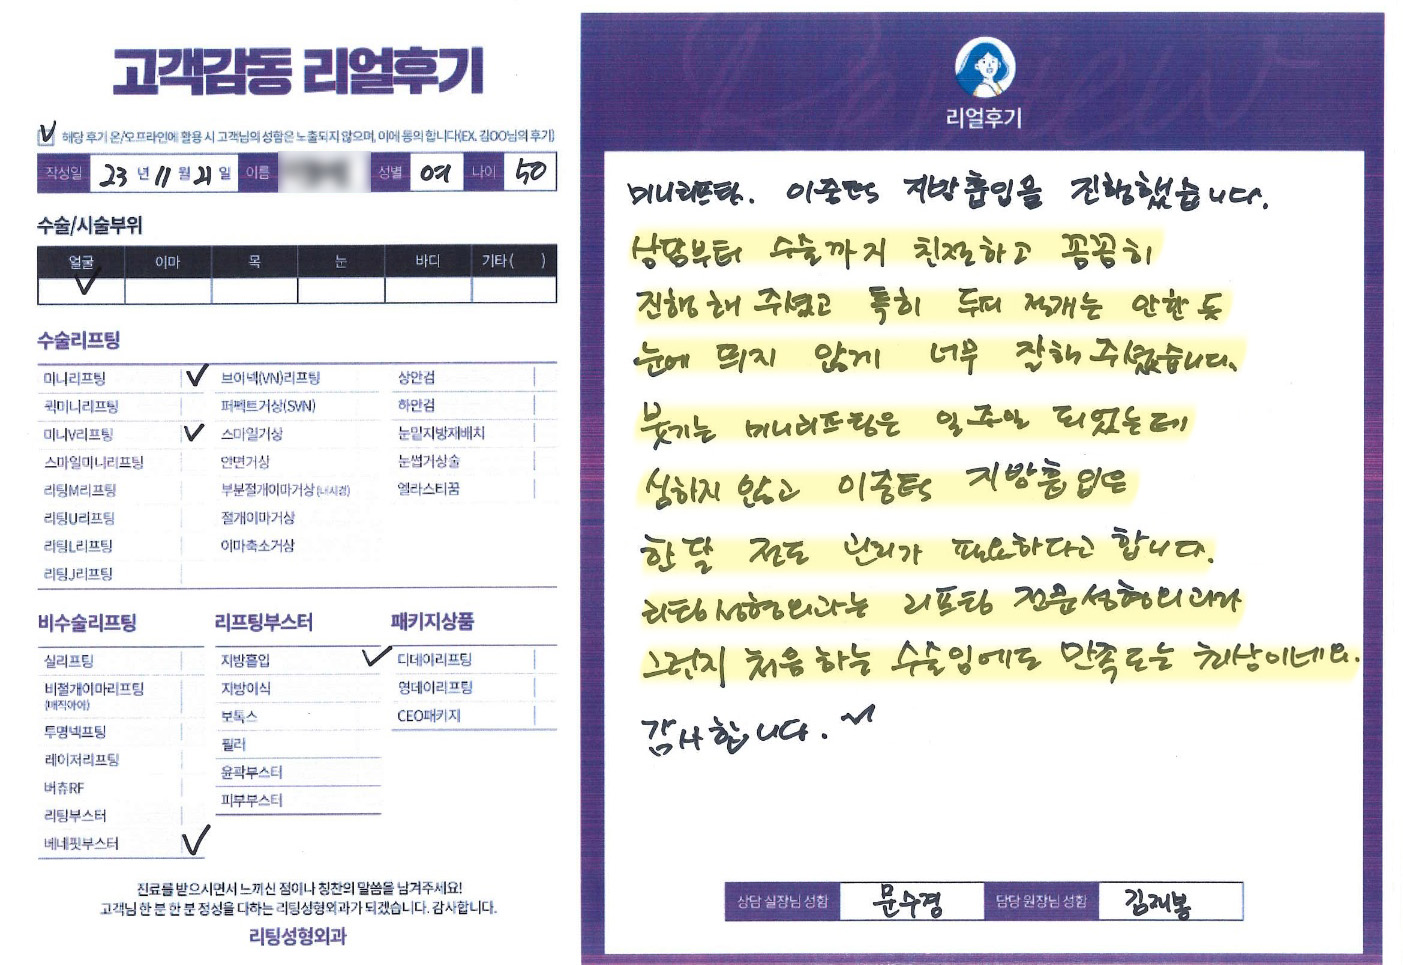 고객감동 리얼후기
해당 후기 온/오프라인에 활용 시 고객님의 성함은 노출되지 않으며, 이에 동의 합니다(EX. 김OO님의 후기)
작성일 23 년 11 월 21 일 이름 성별 여 나이 50
수술/시술부위
얼굴 이마 목 눈 바디 기타( )
수술리프팅
미니리프팅 브이넥(VN)리프팅 상안검
퀵미니리프팅 퍼펙트거상(SVN) 하안검
미니V리프팅 스마일거상 눈밑지방재배치
스마일미니리프팅 안면거상 눈썹거상술
리팅M리프팅 부분절개이마거상(내시경) 엘라스티꿈
리팅U리프팅 절개이마거상
리팅L리프팅 이마축소거상
리팅J리프팅
비수술리프팅 리프팅부스터 패키지상품
실리프팅 지방흡입 디데이리프팅
비절개이마리프팅 지방이식 영데이리프팅
(매직아이)
투명넥프팅 보톡스 CEO패키지
레이저리프팅 필러
버츄RF 윤곽부스터
리팅부스터 피부부스터
베네핏부스터
진료를 받으시면서 느끼신 점이나 칭찬의 말씀을 남겨주세요!
고객님 한 분 한 분 정성을 다하는 리팅성형외과가 되겠습니다. 감사합니다.
리팅성형외과
리얼후기
미니리프팅. 이중턱 지방흡입을 진행했습니다.
상담부터 수술까지 친절하고 꼼꼼히
진행해 주셨고 특히 두피 절개는 안한 듯
눈에 띄지 않게 너무 잘해 주셨습니다.
붓기는 미니리프팅은 일주일 되었는데
심하지 않고 이중턱 지방흡입은
한달 정도 관리가 필요하다고 합니다.
리팅성형외과는 리프팅 전문성형외과라
그런지 처음 하는 수술임에도 만족도는 최상이네요.
감사합니다.
상담 실장님 성함 문수경 담당 원장님 성함 김재봉